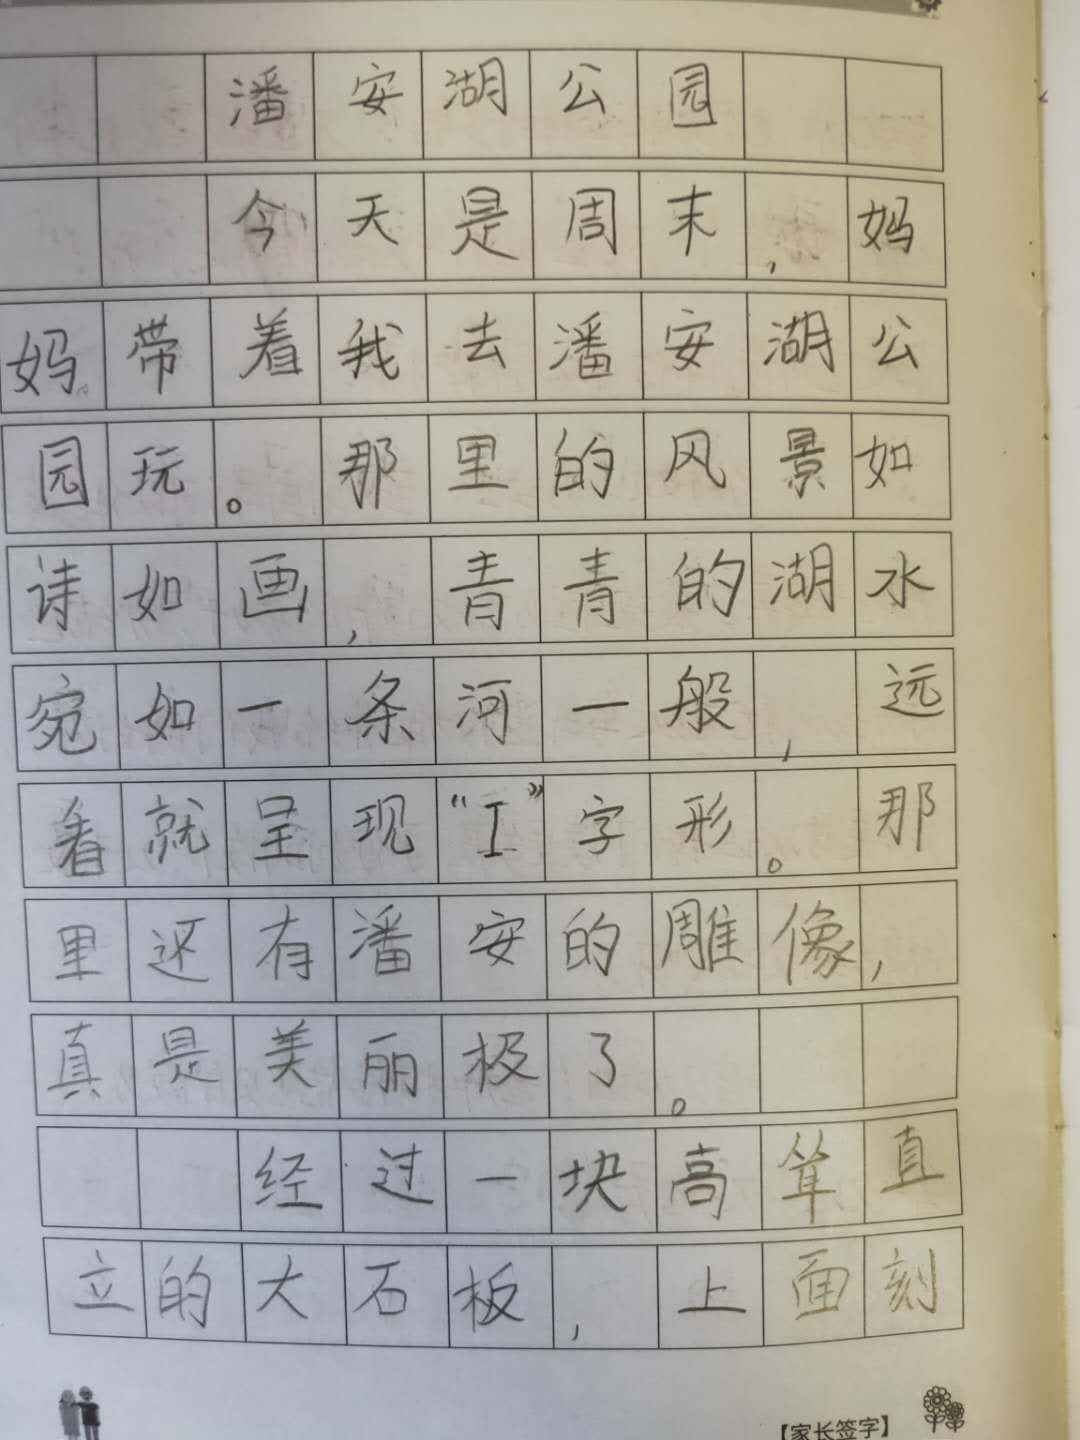 潘安湖公园
今天是周末，妈
妈带着我去潘安湖公
园玩。那里的风景如
诗如画，青青的湖水
宛如一条河一般，远
看就呈现“工”字形。那
里还有潘安的雕像，
真是美丽极了。
经过一块高耸直
立的大石板，上面刻
【家长签字】